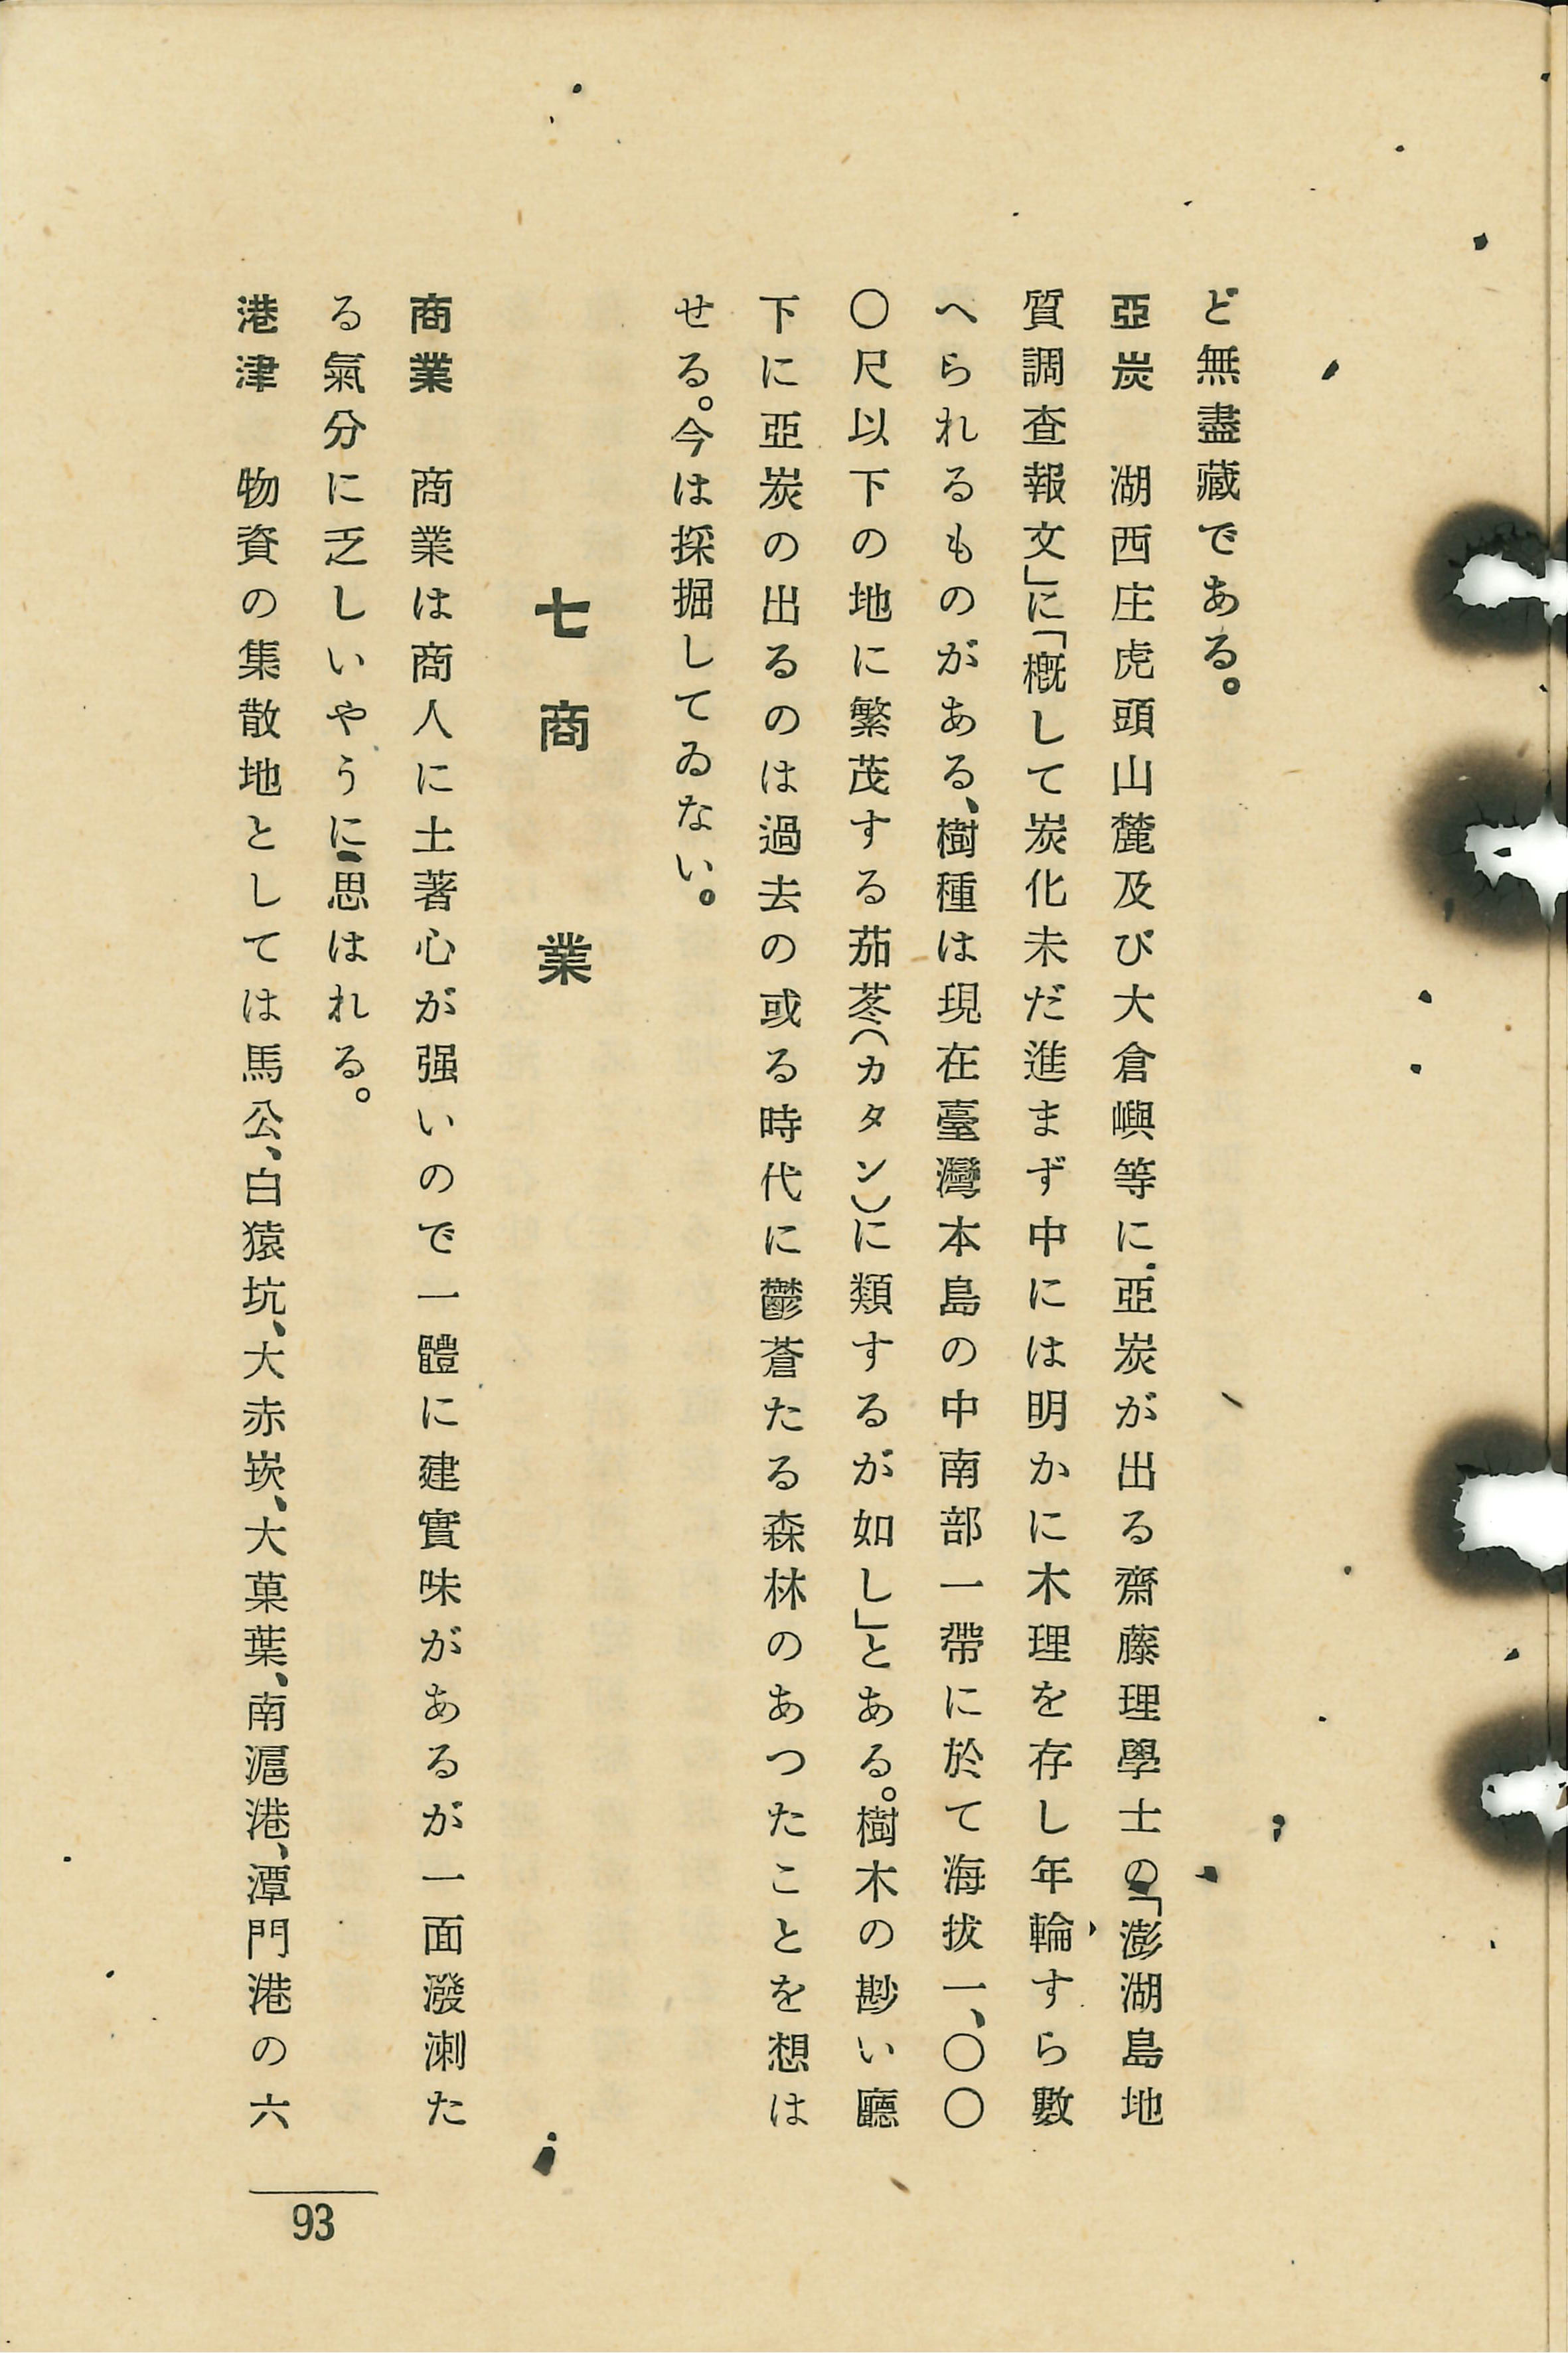 ど無盡藏である。
亞炭　湖西庄虎頭山麓及び大倉嶼等に亞炭が出る齋藤理學士の「澎湖島地
質調査報文」に「槪して炭化未だ進まず中には明かに木理を存し年輪すら數
へられるものがある、樹種は現在臺灣本島の中南部一帶に於て海拔一、〇〇
〇尺以下の地に繁茂する茄苳(カタン)に類するが如し」とある。樹木の尠い廳
下に亞炭の出るのは過去の或る時代に鬱蒼たる森林のあつたことを想は
せる。今は採掘してゐない。
七商業
商業　商業は商人に土著心が强いので一體に建實味があるが一面潑溂た
る氣分に乏しいやうに思はれる。
港津　物資の集散地としては馬公、白猿坑、大赤崁、大菓葉、南滬港、潭門港の六
93